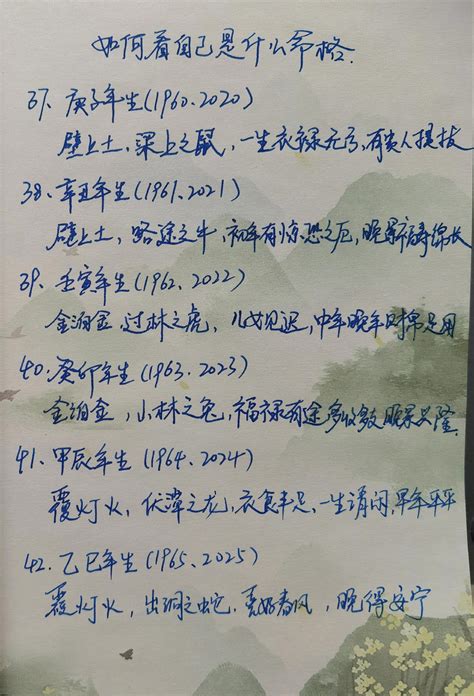 如何看自己是什么命格.
37、庚子年生(1960、2020)
壁上土，梁上之鼠，一生衣禄无亏，有贵人提拔
38、辛丑年生(1961、2021)
壁上土，路途之牛，初年有惊恐之厄，晚景福寿绵长
39、壬寅年生(1962、2022)
金泊金，过林之虎，儿女见迟，中年晚年足用
40、癸卯年生(1963、2023)
金泊金，小林之兔，福禄有途多行教，晚景兴隆
41、甲辰年生(1964、2024)
覆灯火，伏潭之龙，衣食丰足，一生清闲，早年平平
42、乙巳年生(1965、2025)
覆灯火，出洞之蛇，喜好春风，晚得安宁